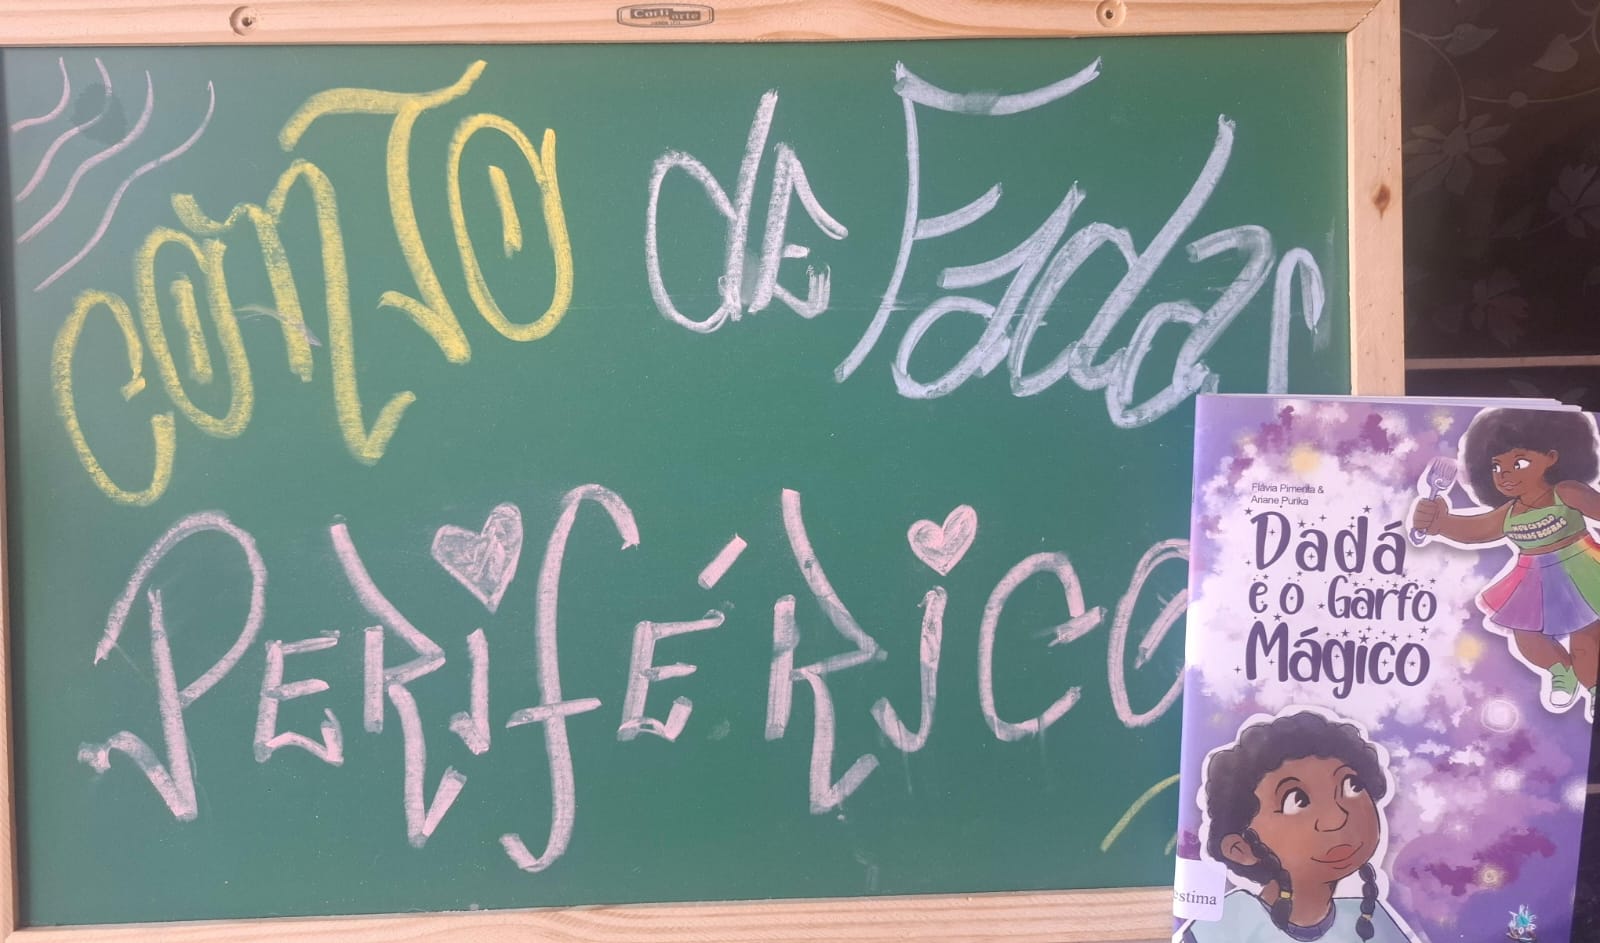 Carli arte
CONTO de Fadas
PERIFÉRICO
Flávia Pimenta &
Ariane Purika
Dadá
e o Garfo
Mágico
MEU CABELO
MINHAS REGRAS
estima